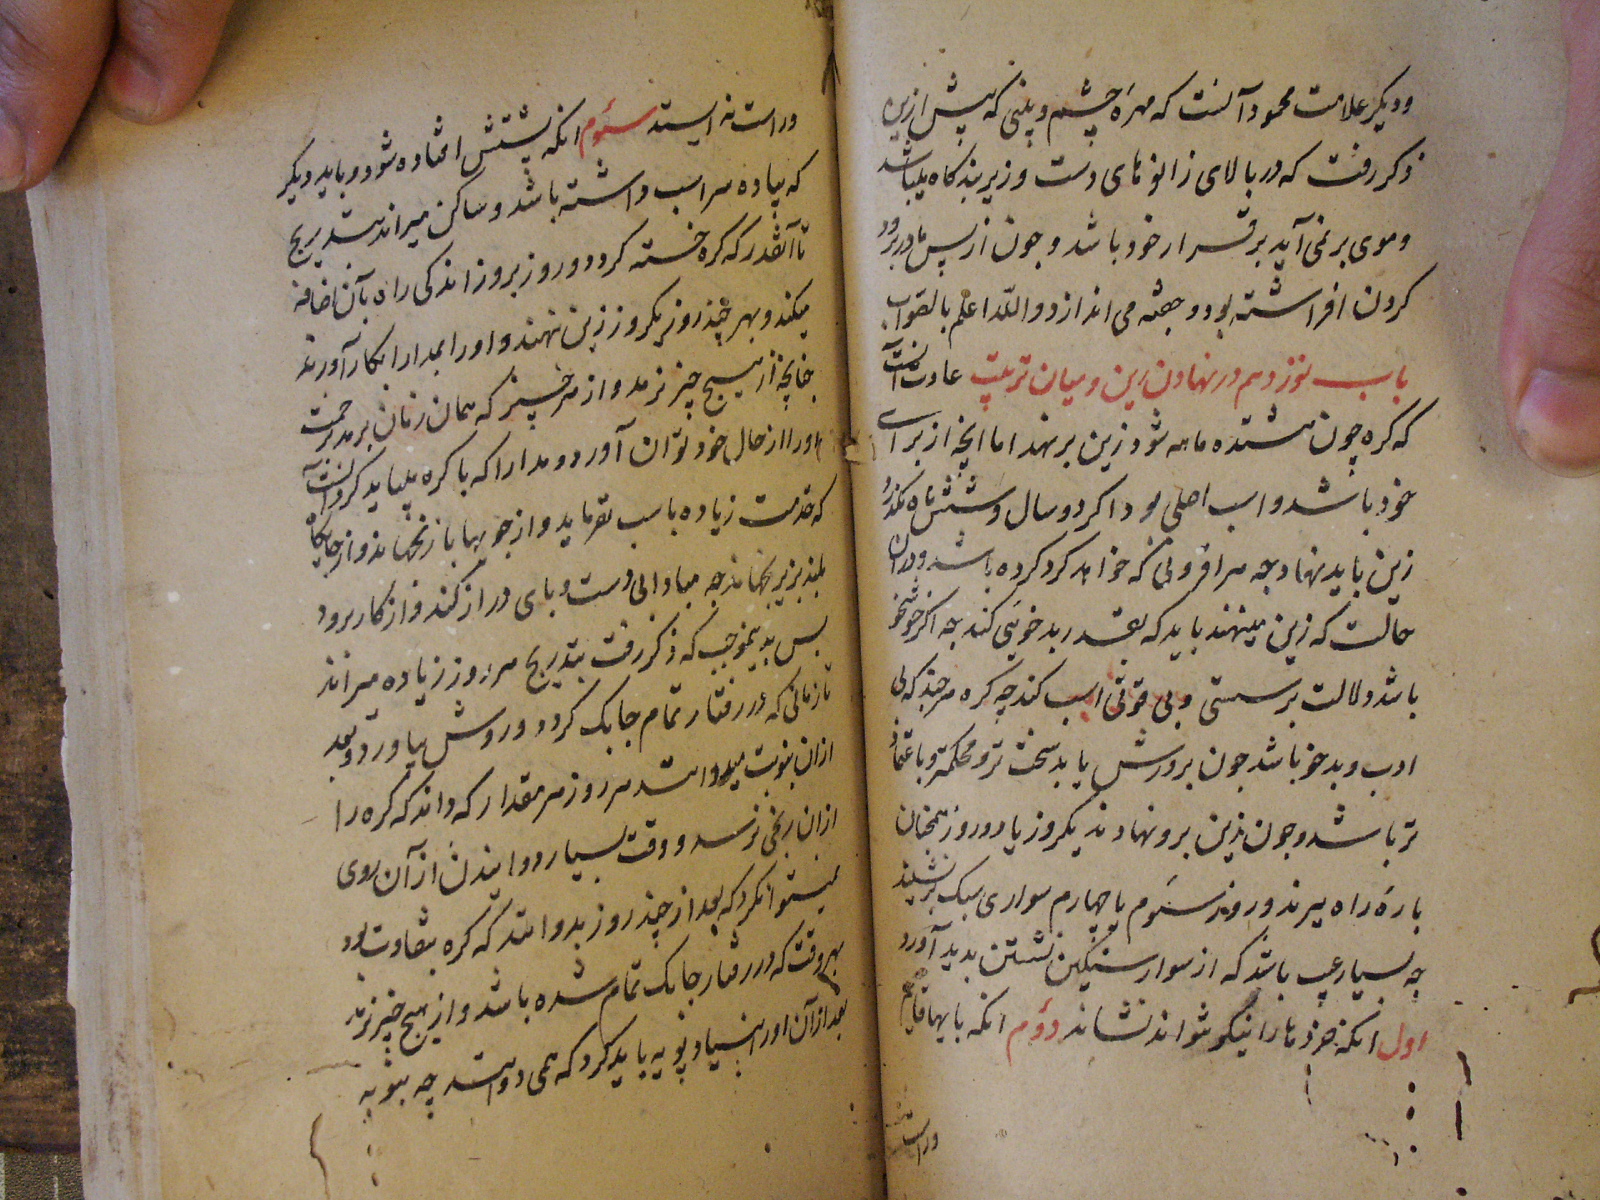 ودیگر علامت محمود آنست که مهره چشم و پلنی که پیش ازین
ذکر رفت که در بالای زانوهای دست و زیر بندگاه میباشد
و موی بر نمی آید بر قرار خود باشد و چون از پس
کردن افراشته بود و جفته می اندازد و الله اعلم بالصواب
باب نوزدهم در نهادن زین و میان ترتیب عادت آنست
که کره چون هشتده ماهه شود زین برنهند اما آنچه از برای
خود باشد و اسب اصلی بود اگر دو سال و شش ماه بگذرد
زین باید نهاد چه هر افزونی که خواهد کرد کرده باشد و دران
حالت که زین مینهند باید که بقدر بدخویی کند چه اگر خوشخو
باشد دلالت بر سستی و بی قوتی اسب کند چه کره هر چند که بی
ادب و بدخو باشد چون پرورش یابد سخت تر و محکمتر و با
تر باشد و چون زین برو نهادند یکروز یا دو روز همچنان
پاره راه بیرند و روز سئوم یا چهارم سواری سبک برنشیند
چه بسیار عیب باشد که از سوار سنگین نشستن پدید آورد
اول آنکه خردها را نیکو نتواند نشاند دؤم آنکه پایها قایم
وراست
وراست نه ایستد سئوم آنکه پشتش افتاده شود و باید دیگر
که پیاده سر اسب داشته باشد و ساکن میراند بتدریج
تا آنقدر که کره خسته گردد و روز بروز اندکی راه بآن اضافه
میکند و بهر چند روز یکروز زین نهند و او را بمدارا بکار آورند
چنانچه از هیچ چیز نرمد و از هر چیز که همان زمان برمد
او را از حال خود توان آورد و مدارا که با کره میباید کرد آنست
که خدمت زیاده باسب نفرماید و از جویها باز نجهاند و از جایگاه
بلند بزیر نجهاند چه مبادا که دست و پای دراز کند و از کار برود
پس بدینموجب که ذکر رفت بتدریج هر روز زیاده میراند
تا زمانی که در رفتار تمام چابک گردد و روش بیاورد و بعد
ازان بنوبت میدواند هر روز هر مقدار که داند که کره را
ازان رنجی نرسد و وقت بسیار دوانیدن از آن روی
میتوان کرد که بعد از چند روز بدواند که کره بتفاوت بود
بهر وقت که در رفتار چابک تمام شده باشد و از هیچ چیز نرمد
بعد ازآن او را بنیاد پویه باید کرد که همی دواند چه بپویه